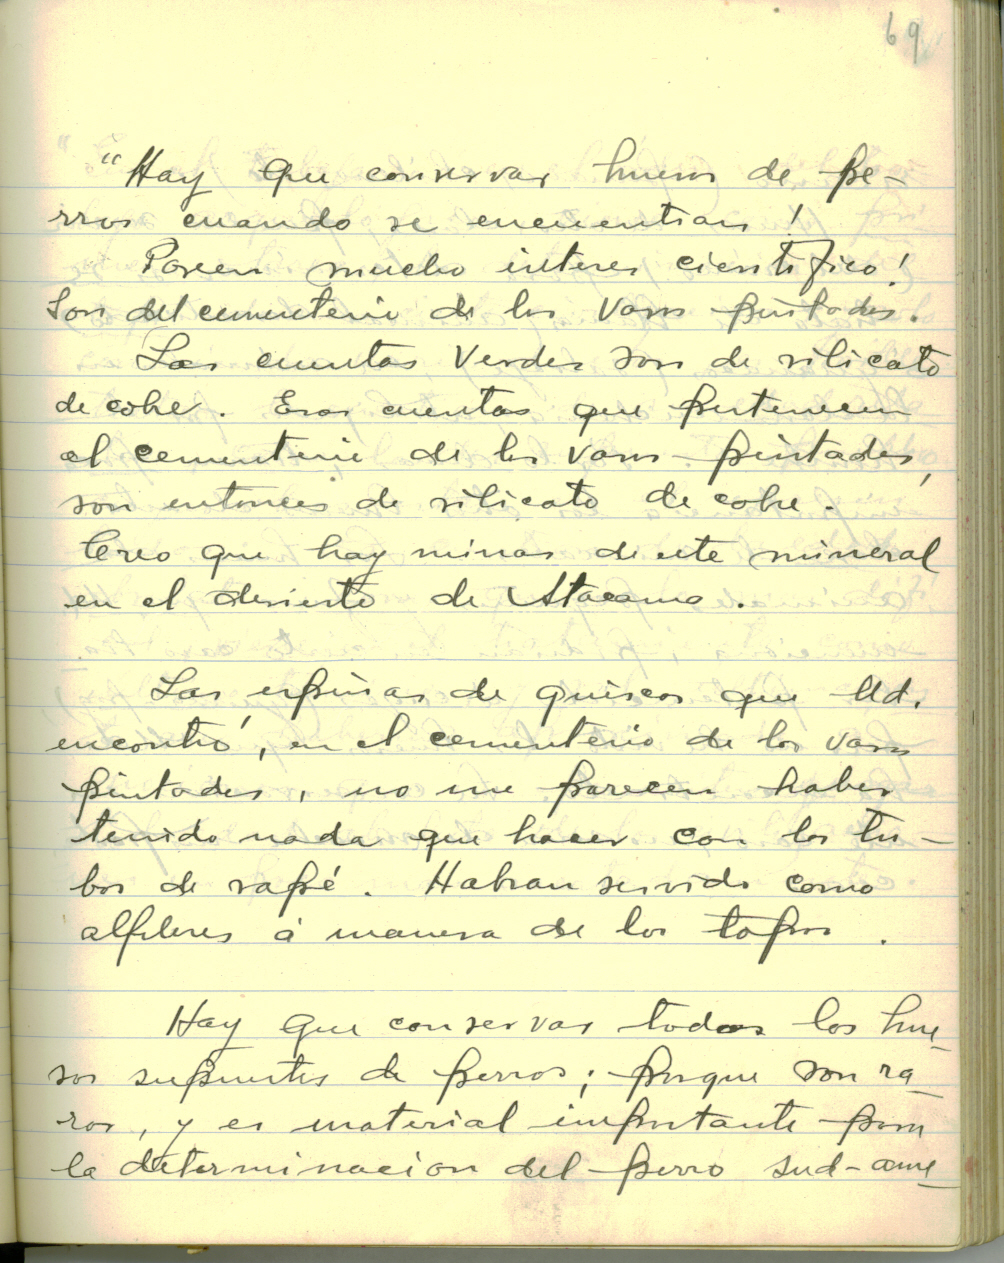 69
"Hay que conservar huesos de pe-
rros cuando se encuentran!
Poseen mucho interes cientifico!
Son del cementerio de los vasos pintados.
Las cuentas verdes son de silicato
de cobre. Esas cuentas que pertenecen
al cementerio de los vasos pintados,
son entonces de silicato de cobre.
Creo que hay minas de este mineral
en el desierto de Atacama.
Las espinas de quiscos que Ud.
encontró, en el cementerio de los vasos
pintados, no me parecen haber
tenido nada que hacer con los tu-
bos de rapé. Habran servido como
alfileres á manera de los topos.
Hay que conservar todos los hue-
sos supuestos de perros; porque son ra-
ros, y es material importante para
la determinacion del perro sud-ame-